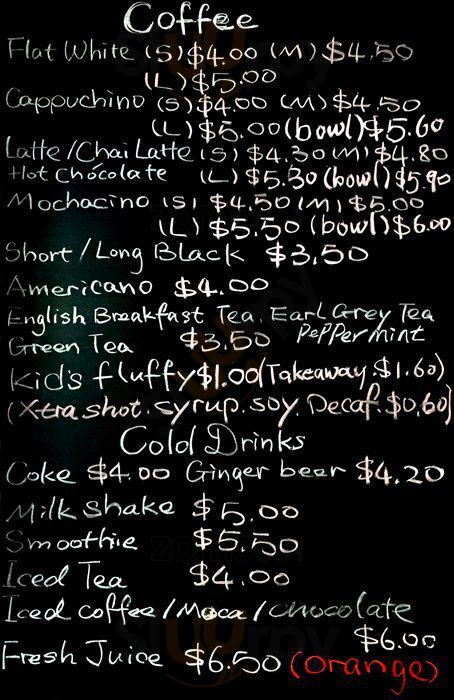 Coffee
Flat White (S) $4.00 (M) $4.50
(L) $5.00
Cappuchino (S) $4.00 (M) $4.50
(L) $5.00 (bowl) $5.60
Latte / Chai Latte (S) $4.30 (M) $4.80
Hot Chocolate (L) $5.30 (bowl) $5.90
Mochacino (S) $4.50 (M) $5.00
(L) $5.50 (bowl) $6.00
Short / Long Black $3.50
Americano $4.00
English Breakfast Tea. Earl Grey Tea
Green Tea $3.50 Peppermint
Kid's fluffy $1.00 (Takeaway.$1.60)
(Xtra shot. syrup. soy. Decaf. $0.60)
Cold Drinks
Coke $4.00 Ginger beer $4.20
Milk shake $5.00
Smoothie $5.50
Iced Tea $4.00
Iced coffee / Moca / chocolate
$6.00
Fresh Juice $6.50 (orange)